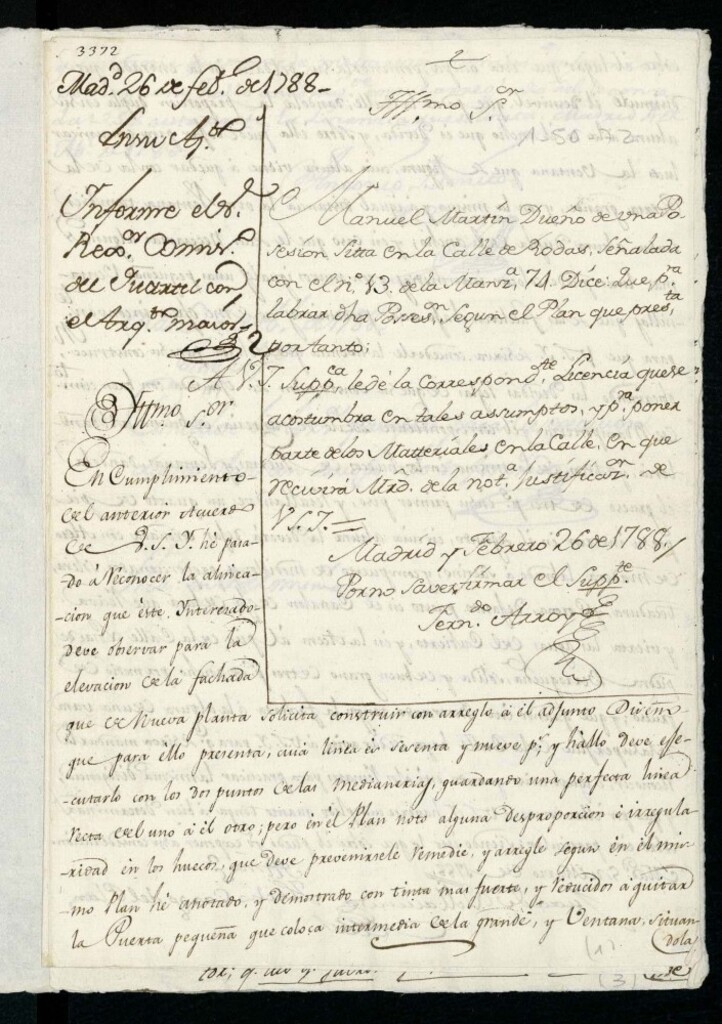 3372
Mad.d 26 de feb.o de 1788-
Informe el S.r
Reg.or Comis.o
del Quartel con
el Arq.to maior-
Illmo S.or
Manuel Martin Dueño de una Po
sesion sitta en la Calle de Rodas, señalada
con el n.o 13. de la Manz.a 74. Dice: que p.a
labrar dha Poses.on segun el Plan que pres.ta
por tanto;
A V.I. Supp.ca le dé la Correspond.te Licencia que se
acostumbra en tales assumptos, y p.a poner
parte de los Matteriales en la Calle, en que
recivirá Mrd. de la not.a Justificaz.on de
V.S.I. =
Madrid y Febrero 26 de 1788./
Por no saver firmar el Supp.te
Fern.do Arroyo
Illmo S.or
En Cumplimiento
del anterior Acuerdo
de V.S.Y. hé pasa-
do á reconocer la alinea-
-cion que éste Interesado
deve observar para la
elevacion de la fachada
que de Nueva planta solicita construir con arreglo á el adjunto Diseño
que para ello presenta, cuia linea es de sesenta y nueve p.s y hallo deve effe-
-cutarlo con los dos puntos de las Medianerias, guardando una perfecta linea
recta del uno á el otro; pero en el Plan noto alguna desproporcion é irregula
-ridad en los huecos, que deve prevenirsele remedie, y arregle segun en el mis-
mo Plan hé anotado, y demostrado con tinta mas fuerte, y reducidos á quitar
la Puerta pequeña que coloca intermedia de la grande, y Ventana, situan
dola